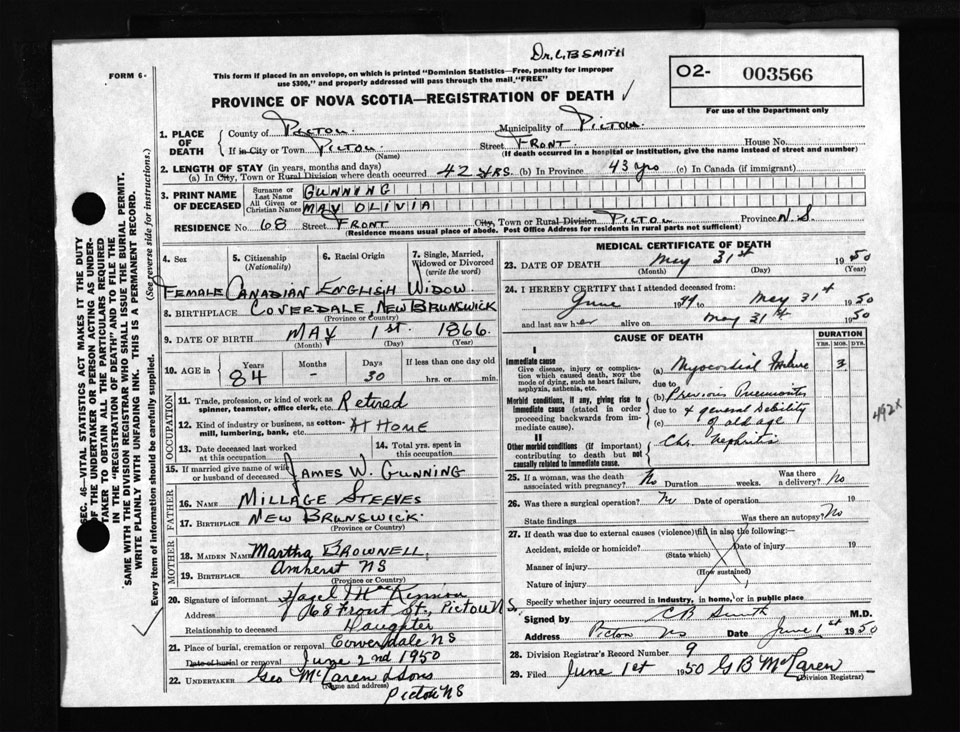 Dr. C.B SMITH
FORM 6-
This form if placed in an envelope, on which is printed "Dominion Statistics—Free, penalty for improper
use $300," and properly addressed will pass through the mail, "FREE"
O2- 003566
For use of the Department only
PROVINCE OF NOVA SCOTIA—REGISTRATION OF DEATH ✓
1. PLACE OF DEATH { County of Pictou Municipality of Pictou
If in City or Town Pictou (Name) Street Front House No.
(If death occurred in a hospital or institution, give the name instead of street and number)
2. LENGTH OF STAY (in years, months and days)
(a) In City, Town or Rural Division where death occurred 42 yrs. (b) In Province 43 yrs (c) In Canada (if immigrant)
3. PRINT NAME OF DECEASED { Surname or Last Name GUNNING
All Given or Christian Names MAY OLIVIA
RESIDENCE No. 68 Street Front City, Town or Rural Division Pictou Province N.S.
(Residence means usual place of abode. Post Office Address for residents in rural parts not sufficient)
4. Sex 5. Citizenship (Nationality) 6. Racial Origin 7. Single, Married, Widowed or Divorced (write the word)
Female Canadian English Widow
8. BIRTHPLACE Coverdale, New Brunswick
(Province or Country)
9. DATE OF BIRTH May 1st. 1866
(Month) (Day) (Year)
10. AGE in { Years 84 Months Days 30 If less than one day old
hrs. or min.
OCCUPATION
11. Trade, profession, or kind of work as spinner, teamster, office clerk, etc. Retired
12. Kind of industry or business, as cotton-mill, lumbering, bank, etc. At Home
13. Date deceased last worked at this occupation 14. Total yrs. spent in this occupation
15. If married give name of wife or husband of deceased James W. Gunning
FATHER
16. NAME Millage Steeves
17. BIRTHPLACE New Brunswick
(Province or Country)
MOTHER
18. MAIDEN NAME Martha Brownell
19. BIRTHPLACE Amherst NS
(Province or Country)
20. Signature of informant Hazel MacKinnon
Address 68 Front St., Pictou NS
Relationship to deceased Daughter
21. Place of burial, cremation or removal Coverdale NS
Date of burial or removal June 2nd 1950
22. UNDERTAKER Geo McLaren & Sons
(Name and address) Pictou NS
MEDICAL CERTIFICATE OF DEATH
23. DATE OF DEATH May 31st 1950
(Month) (Day) (Year)
24. I HEREBY CERTIFY that I attended deceased from:
June 1949 to May 31st 1950
and last saw her alive on May 31st 1950
CAUSE OF DEATH DURATION
YRS. MOS. DYS.
I
Immediate cause
Give disease, injury or complication which caused death, not the mode of dying, such as heart failure, asphyxia, asthenia, etc.
(a) Myocardial Failure 3
due to
Morbid conditions, if any, giving rise to immediate cause (stated in order proceeding backwards from immediate cause).
(b) Previous Pneumonitis
due to & general debility
(c) of old age
492X
II
Other morbid conditions (if important) contributing to death but not causally related to immediate cause.
Chr. nephritis
25. If a woman, was the death associated with pregnancy? No Duration weeks. Was there a delivery? No
26. Was there a surgical operation? No Date of operation 19
State findings Was there an autopsy? No
27. If death was due to external causes (violence) fill in also the following:
Accident, suicide or homicide? (State which) Date of injury 19
Manner of injury (How sustained)
Nature of injury
Specify whether injury occurred in industry, in home, or in public place
Signed by C B Smith M.D.
Address Pictou NS Date June 1st 1950
28. Division Registrar's Record Number 9
29. Filed June 1st 1950 G B McLaren
(Division Registrar)
SEC. 46—VITAL STATISTICS ACT MAKES IT THE DUTY
OF THE UNDERTAKER OR PERSON ACTING AS UNDER-
TAKER TO OBTAIN ALL THE PARTICULARS REQUIRED
IN THE "REGISTRATION OF DEATH" AND TO FILE THE
SAME WITH THE DIVISION REGISTRAR WHO SHALL ISSUE THE BURIAL PERMIT.
WRITE PLAINLY WITH UNFADING INK. THIS IS A PERMANENT RECORD.
Every item of information should be carefully supplied. (See reverse side for instructions.)